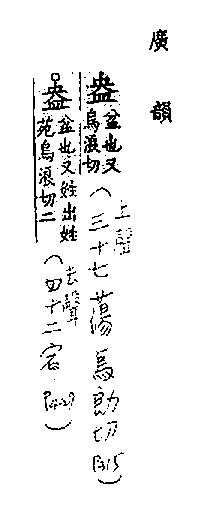 廣韻
盎盆也又烏浪切(上聲三十七蕩烏朗切P315)
盎盆也又姓出姓苑烏浪切二(去聲四十二宕P427)